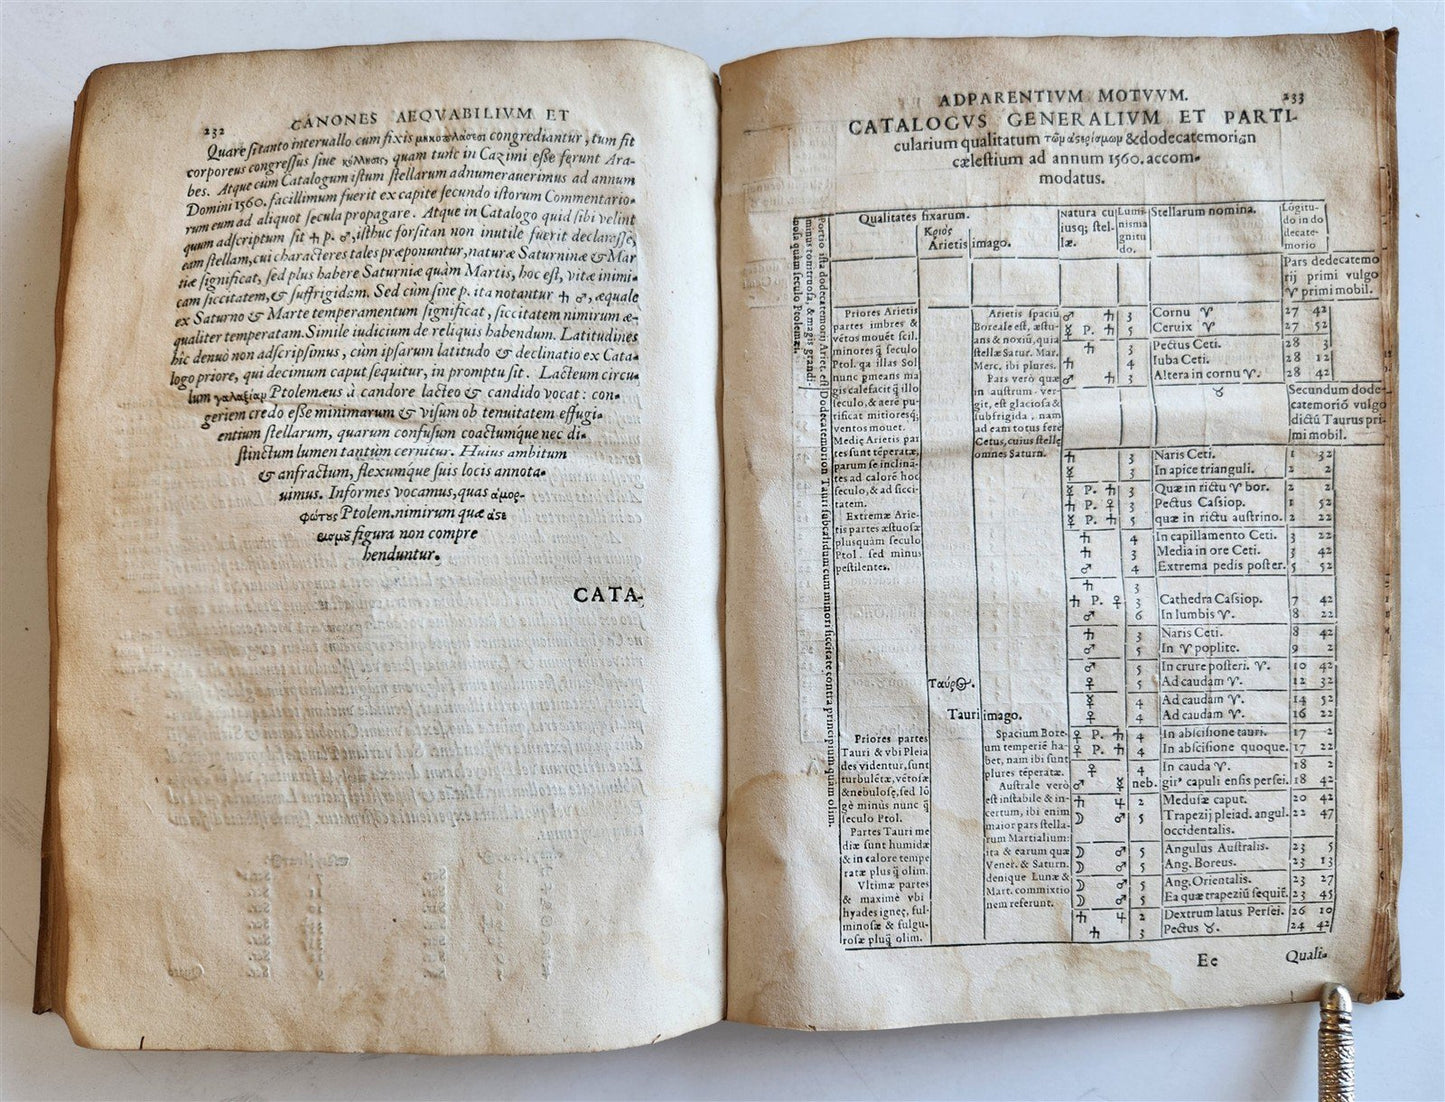 232
CANONES AEQVABILIVM ET
Quare si tanto interuallo cum fixis congrediantur, tum fit
corporeus congressus siue κόλλησις, quam tunc in Cazimi esse ferunt Ara-
bes. Atque cum Catalogum istum stellarum adnumerauerimus ad annum
Domini 1560. facillimum fuerit ex capite secundo istorum Commentario-
rum eum ad aliquot secula propagare. Atque in Catalogo quid sibi velint
quum adscriptum sit ♄ p. ♂, isthuc forsitan non inutile fuerit declarasse,
eam stellam, cui characteres tales præponuntur, naturæ Saturninæ & Mar
tiæ significat, sed plus habere Saturniæ quàm Martis, hoc est, vitæ inimi-
cam siccitatem, & suffrigidam. Sed cùm sine p. ita notantur ♄ ♂, æquale
ex Saturno & Marte temperamentum significat, siccitatem nimirum æ-
qualiter temperatam. Simile iudicium de reliquis habendum. Latitudines
hic denuò non adscripsimus, cùm ipsarum latitudo & declinatio ex Cata-
logo priore, qui decimum caput sequitur, in promptu sit. Lacteum circu-
lum γαλαξίαμ Ptolemæus à candore lacteo & candido vocat: con-
geriem credo esse minimarum & visum ob tenuitatem effugi-
entium stellarum, quarum confusum coactumque nec di-
stinctum lumen tantùm cernitur. Huius ambitum
& anfractum, flexumque suis locis annota-
uimus. Informes vocamus, quas ἀμορ-
φώτους Ptolem. nimirum quæ ἀστε
ρισμῷ figura non compre
henduntur.
CATA-
ADPARENTIVM MOTVVM.
233
CATALOGVS GENERALIVM ET PARTI-
cularium qualitatum τῶμ ἀστρισμωμ & dodecatemoriωn
cælestium ad annum 1560. accom-
modatus.
Portio ista dodecatemorij Ariet. est
minus tonitruosa, & magis grandi-
nosa quàm seculo Ptolemæi.
Dodecatemorion Tauri subcalidum cum minori siccitate contra principium quàm olim.
Qualitates fixarum.
Κριός
Arietis imago.
Natura cu
iusq; stel-
læ.
Lumi-
nisma
gnitu
do.
Stellarum nomina.
Lõgitu-
do in do
decate-
morio
Pars dedecatemo
rij primi vulgo
♈ primi mobil.
Priores Arietis
partes imbres &
vẽtos mouẽt scil.
minores q̃ seculo
Ptol. qa illas Sol
nunc pmeans ma
gis calefacit q̃ illo
seculo, & aerẽ pu-
rificat mitioresq;
ventos mouet.
Mediæ Arietis par
tes sunt tẽperatæ,
parum se inclina-
tes ad calorẽ hoc
seculo, & ad sicci-
tatem.
Extremæ Arie-
tis partes æstuosæ
plusquàm seculo
Ptol. sed minus
pestilentes.
Arietis spaciũ
Boreale est, æstu-
ans & noxiũ, quia
stellæ Satur. Mar.
Merc. ibi plures.
Pars verò quæ
in austrum ver-
git, est glaciosa &
subfrigida, nam
ad eam totus ferè
Cetus, cuius stellę
omnes Saturn.
♂ ♄ 3 Cornu ♈ 27 42
☿ P. ♄ 5 Ceruix ♈ 27 52
♄ 3 Pectus Ceti. 28 3
♄ 4 Iuba Ceti. 28 12
♂ ♄ 3 Altera in cornu ♈. 28 42
♉
Secundum dode-
catemoriõ vulgo
dictũ Taurus pri-
mi mobil.
♄ 3 Naris Ceti. 1 32
☿ 3 In apice trianguli. 2 2
☿ P. ♄ 3 Quæ in rictu ♈ bor. 2 2
♄ P. ♀ 3 Pectus Cassiop. 1 52
☿ P. ♄ 5 quæ in rictu austrino. 2 22
♄ 4 In capillamento Ceti. 3 22
♄ 3 Media in ore Ceti. 3 42
♂ 4 Extrema pedis poster. 5 52
♄ 3
♄ P. ♀ 3 Cathedra Cassiop. 7 42
♂ 6 In lumbis ♈. 8 22
♄ 3 Naris Ceti. 8 42
♂ 5 In ♈ poplite. 9 2
♂ 5 In crure posteri. ♈. 10 42
♀ 5 Ad caudam ♈. 12 32
☿ 4 Ad caudam ♈. 14 52
♀ 4 Ad caudam ♈. 16 22
Ταύρος.
Tauri imago.
Priores partes
Tauri & vbi Pleia
des videntur, sunt
turbulẽtæ, vẽtosæ
& nebulosę, sed lõ
gè minùs nunc q̃
seculo Ptol.
Partes Tauri me
diæ sunt humidæ
& in calore tempe
ratæ plus q̃ olim.
Vltimæ partes
& maximè vbi
hyades igneę, ful-
minosæ & fulgu-
rosæ plusq̃ olim.
Spacium Bore-
um temperiẽ ha-
bet, nam ibi sunt
plures tẽperatæ.
Australe verò
est instabile & in-
certum, ibi enim
maior pars stella-
rum Martialium:
ita & earum quæ
Vener. & Saturn.
denique Lunæ &
Mart. commixtio
nem referunt.
♀ P. ♄ 4 In abscisione tauri. 17 2
♀ P. ♄ 4 In abscisione quoque. 17 22
♀ 4 In cauda ♈. 18 2
♂ ☿ neb. gir' capuli ensis persei. 18 42
♄ ♃ 2 Medusæ caput. 20 42
☽ ♂ 5 Trapezij pleiad. angul. 22 47
occidentalis.
☽ ♂ 5 Angulus Australis. 23 5
☽ ♂ 5 Ang. Boreus. 23 13
☽ ♂ 5 Ang. Orientalis. 23 27
☽ ♂ 5 Ea quæ trapeziũ sequit̃. 23 45
♄ ♃ 2 Dextrum latus Persei. 26 10
♄ 3 Pectus ♉. 24 42
Ee
Quali-